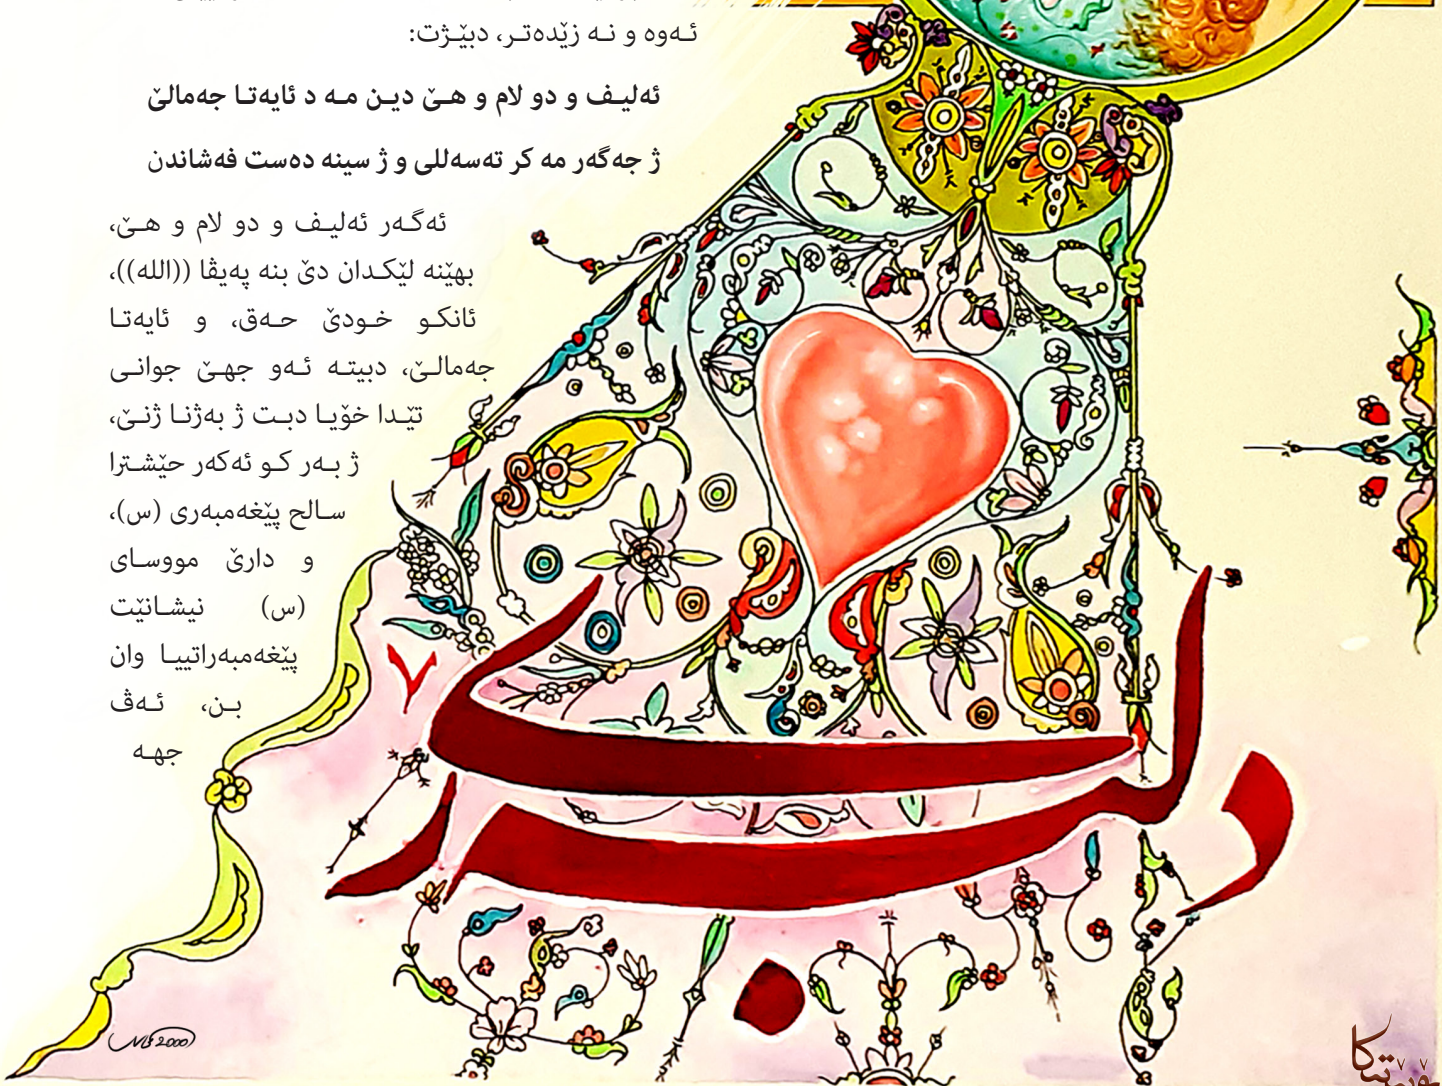 ئـەوە و نـە زێدەتـر، دبێـژت:
ئەلیـف و دو لام و هـێ دیـن مـە د ئایەتـا جەمالێ
ژ جەگەر مە کر تەسەللی و ژ سینە دەست فەشاندن
ئەگـەر ئەلیـف و دو لام و هـێ،
بهێنە لێکـدان دێ بنە پەیڤا ((الله))،
ئانکـو خـودێ حـەق، و ئایەتـا
جەمالـێ، دبیتـە ئـەو جهـێ جوانـی
تێـدا خۆیـا دبـت ژ بەژنـا ژنـێ،
ژ بـەر کـو ئەکەر حێشـترا
سـالح پێغەمبەری (س)،
و دارێ مووسـای
(س) نیشـانێت
پێغەمبەراتییـا وان
بـن، ئـەڤ
جهـە
دلبەرێک
2000